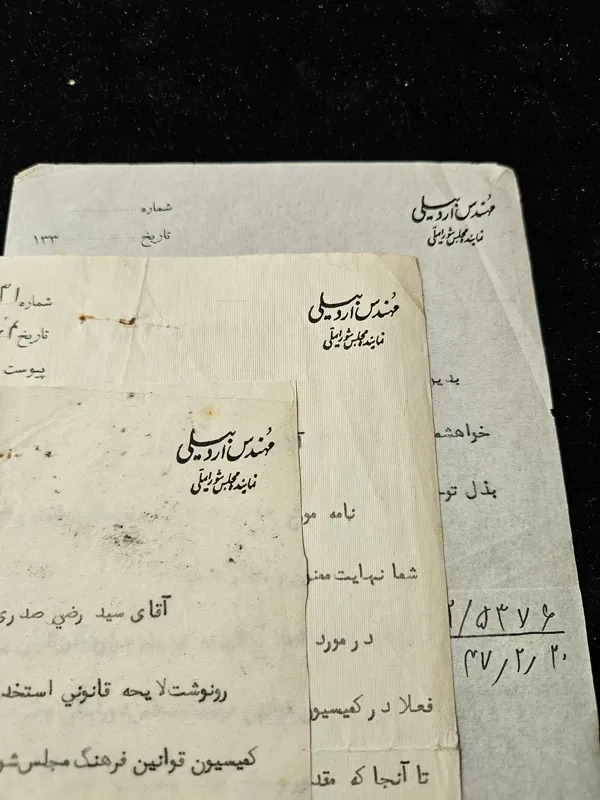 مهندس اردبیلی
نماینده مجلس شورایملی
شماره
تاریخ ۱۳۳
خواهشم
بذل تو
۵۳۷۶/
۴۷/۲/۲۰
مهندس اردبیلی
نماینده مجلس شورایملی
شماره
تاریخ
پیوست
نامه مو
شما نهایت ممنو
در مورد
فعلا در کمیسیون
تا آنجا که مقد
مهندس اردبیلی
نماینده مجلس شورایملی
آقای سید رضي صدری
رونوشت لایحه قانوني استخد
کمیسیون قوانین فرهنگ مجلس شو